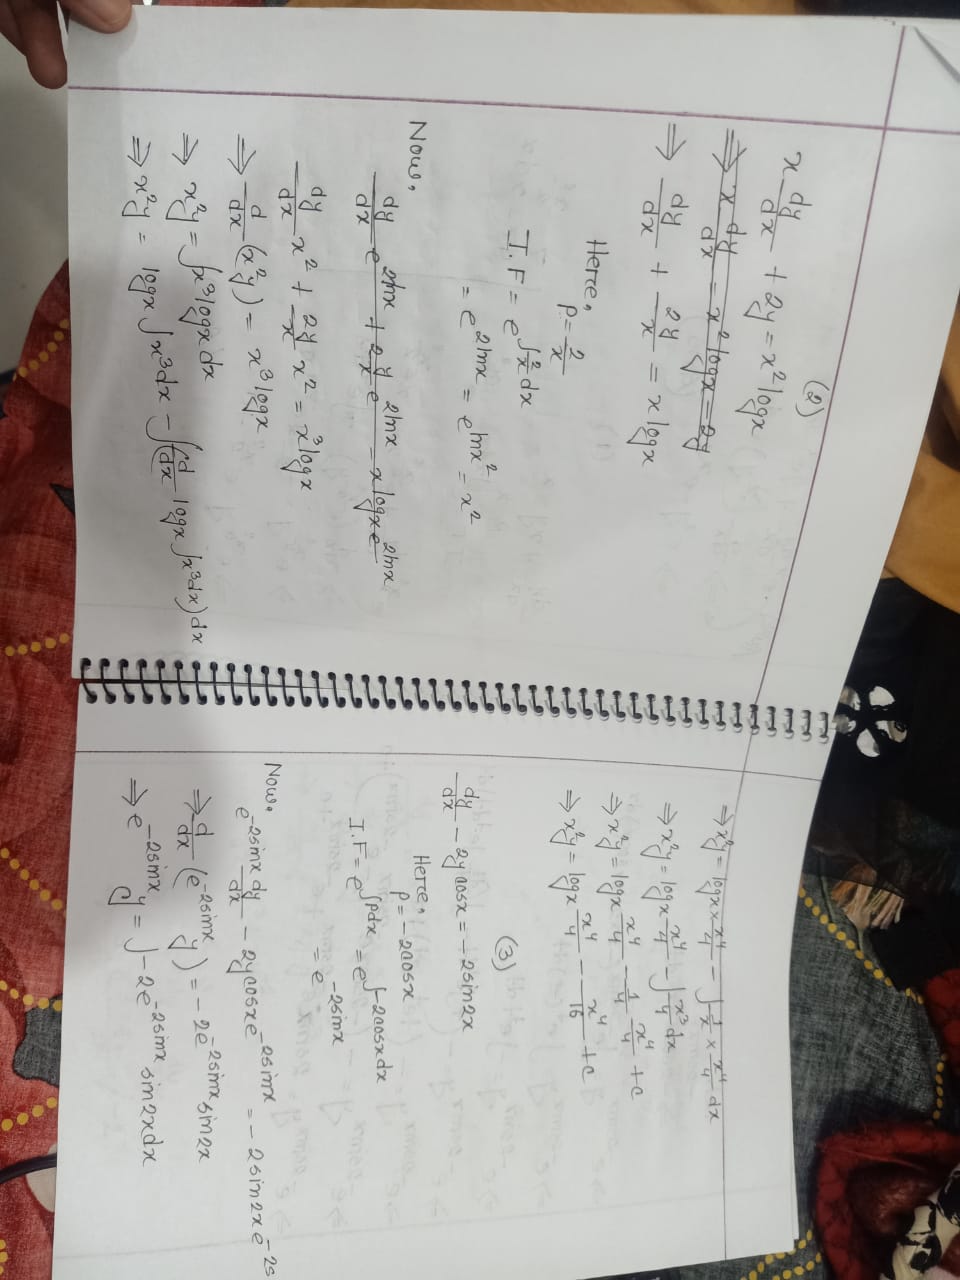 (2)
x dy/dx + 2y = x² logx
⇒ x dy/dx = x² logx = 2y
⇒ dy/dx + 2y/x = x logx
Here,
P = 2/x
I.F = e^∫2/x dx
= e^2lnx = e^lnx² = x²
Now,
dy/dx e^2lnx + 2 y/x e^2lnx = x logx e^2lnx
dy/dx x² + 2y/x x² = x³ logx
⇒ d/dx (x²y) = x³ logx
⇒ x²y = ∫x³ logx dx
⇒ x²y = logx ∫x³dx - ∫(d/dx logx ∫x³dx) dx
⇒ x²y = logx × x⁴/4 - ∫1/x × x⁴/4 dx
⇒ x²y = logx x⁴/4 - ∫x³/4 dx
⇒ x²y = logx x⁴/4 - 1/4 x⁴/4 + c
⇒ x²y = logx x⁴/4 - x⁴/16 + c
(3)
dy/dx - 2y cosx = - 2sin2x
Here,
P = -2cosx
I.F = e^∫Pdx = e^∫-2cosx dx
= e^-2sinx
Now,
e^-2sinx dy/dx - 2ycosx e^-2sinx = - 2sin2x e^-2s
⇒ d/dx (e^-2sinx y) = - 2e^-2sinx sin2x
⇒ e^-2sinx y = ∫-2e^-2sinx sin2x dx